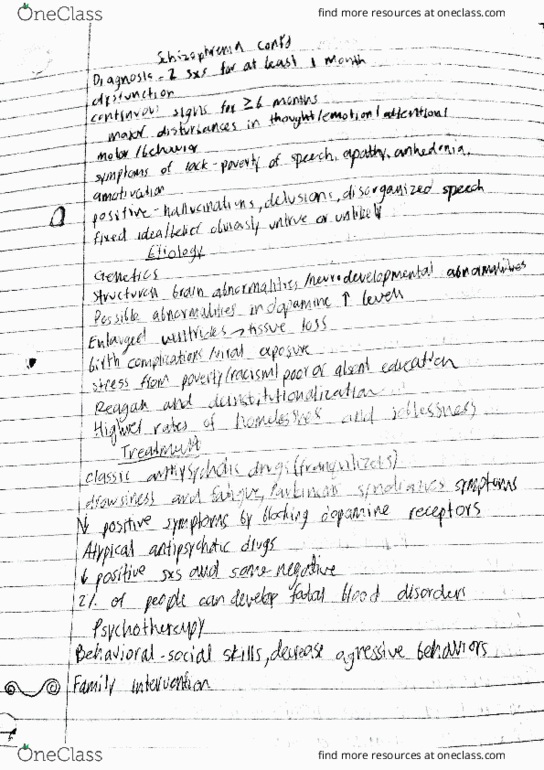 OneClass
find more resources at oneclass.com
Schizophrenia cont'd
Diagnosis - 2 sxs for at least 1 month
dysfunction
continuous signs for ≥ 6 months
major disturbances in thought/emotion/attention/
motor/behavior
symptoms of lack - poverty of speech, apathy, anhedonia,
amotivation
positive - hallucinations, delusions, disorganized speech
fixed idea/belief obviously untrue or unlikely
Etiology
Genetics
structural brain abnormalities/neurodevelopmental abnormalities
Possible abnormalities in dopamine ↑ levels
Enlarged ventricles → tissue loss
birth complications/viral exposure
stress from poverty/racism/poor or absent education
Reagan and deinstitutionalization
Higher rates of homelessness and joblessness
Treatment
classic antipsychotic drugs (tranquilizers)
drowsiness and fatigue, Parkinson symptoms
↓ positive symptoms by blocking dopamine receptors
Atypical antipsychotic drugs
↓ positive sxs and some negative
2% of people can develop fatal blood disorders
Psychotherapy
Behavioral - social skills, decrease agressive behaviors
Family intervention
OneClass
find more resources at oneclass.com